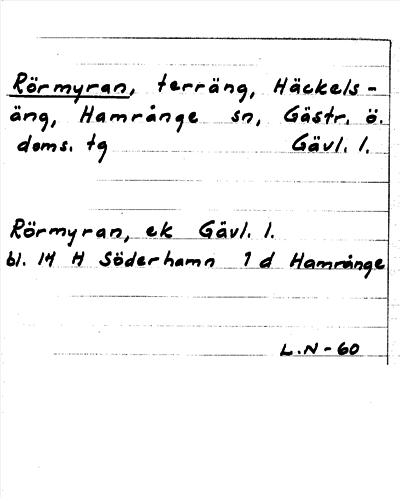 Rörmyran, terräng, Häckels-
äng, Hamrånge sn, Gästr. ö.
doms. tg Gävl. l.
Rörmyran, ek Gävl. l.
bl. 14 H Söderhamn 1 d Hamrånge
L.N-60